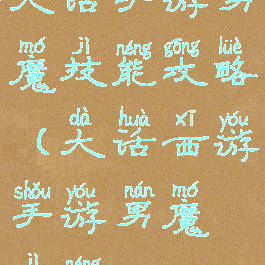 大话手游男
mó jì néng gōng lüè
魔技能攻略
dà huà xī yóu
（大话西游
shǒu yóu nán mó
手游男魔
jì néng